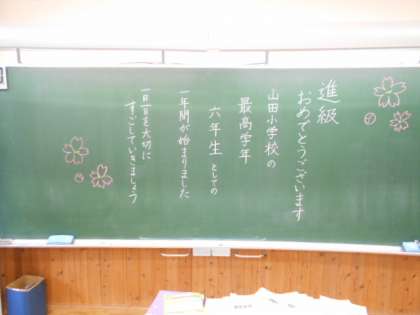 進級
おめでとうございます
山田小学校の
最高学年
六年生としての
一年間が始まりました
一日一日を大切に
すごしていきましょう